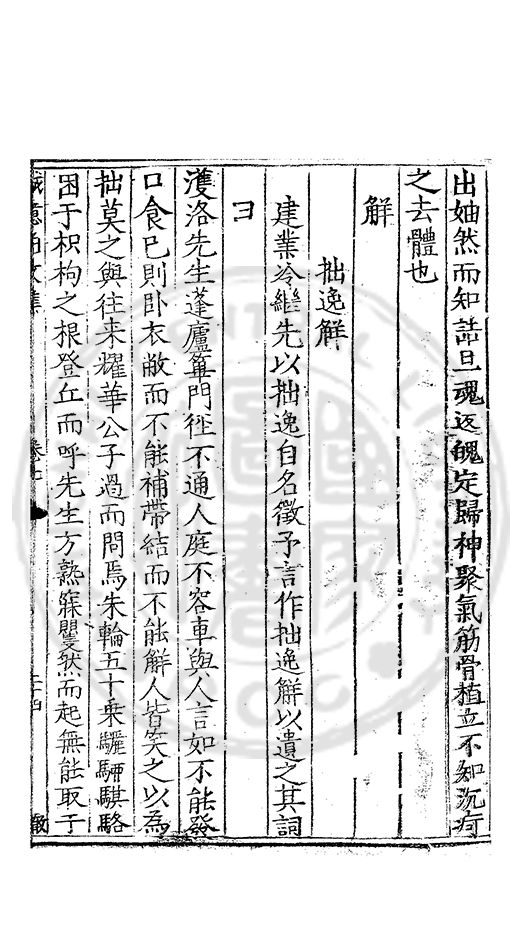 出妯然而知詰旦魂返魄定歸神聚氣筋骨植立不知沉痾
之去體也
解
拙逸解
建業冷繼先以拙逸自名徵予言作拙逸解以遺之其詞
曰
濩洛先生蓬廬篳門徑不通人庭不容車與人言如不能發
口食已則卧衣敝而不能補帶結而不能解人皆笑之以為
拙莫之與往来耀華公子過而問焉朱輪五十乗驪騮騏駱
困于枳枸之根登丘而呼先生方熟寐瞿然而起無能取予
誠意伯文集
卷七